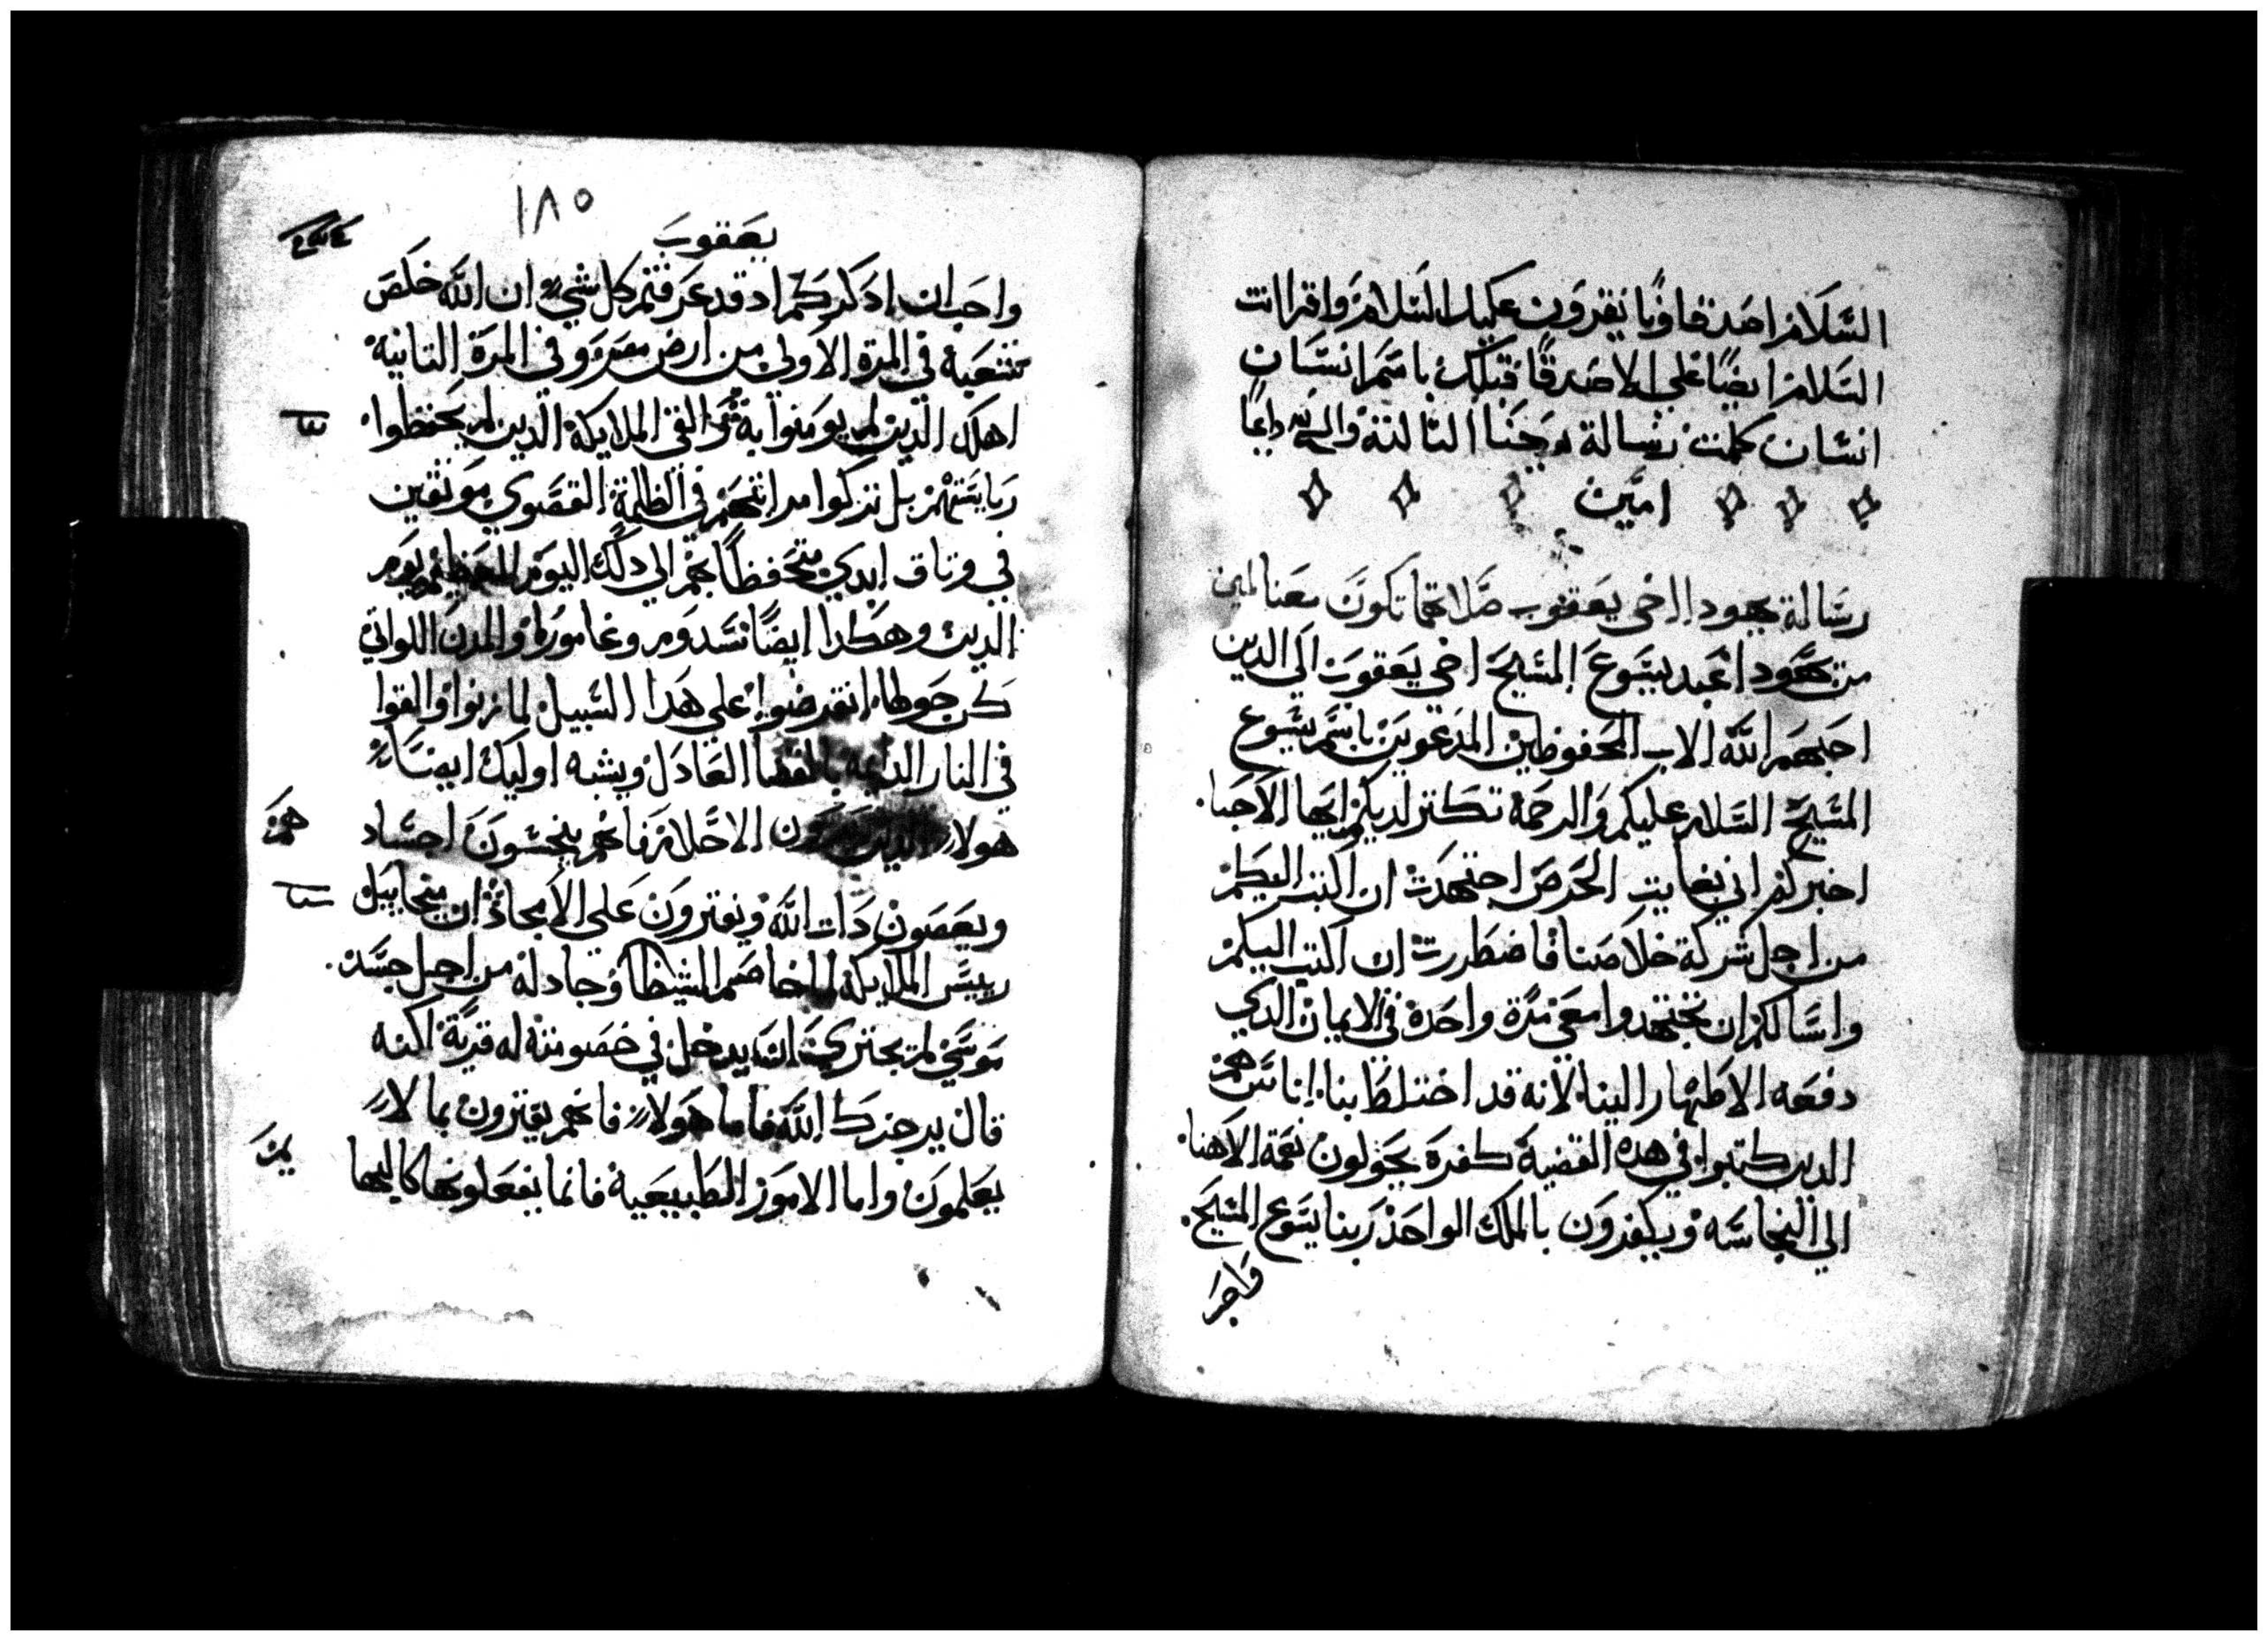 السلام اصدقاونا يقرون عليك السلام واقرا انت
السلام ايضا على الاصدقا قبلك باسم انسان
انسان كملت رسالة يوحنا التالتة والسبح لله دايما
امين
رسالة يهودا اخي يعقوب صلاتهما تكون معنا امين
من يهودا عبد يسوع المسيح اخي يعقوب الى الدين
احبهم الله الاب المحفوظين المدعوين باسم يسوع
المسيح السلام عليكم والرحمة تكتر لديكم ايها الاحبا
اخبركم اني بغايت الحرص اجتهدت ان اكتب اليكم
من اجل شركة خلاصنا فاضطررت ان اكتب اليكم
واسالكم ان تجتهدوا معي مرة واحدة في الايمان الدي
دفعه الاطهار الينا لانه قد اختلط بنا اناس هم
الدين كتبوا في هده القضية كفرة يحولون نعمة الاهنا
الى النجاسه ويكفرون بالملك الواحد ربنا يسوع المسيح
واحر
١٨٥
يعقوب
واحب ان ادكركم اد قد عرفتم كل شي ان الله خلص
شعبه في المرة الاولى من ارض مصر وفي المرة التانية
اهلك الدين لم يومنوا به تم القى الملايكة الدين لم يحفظوا
رياستهم بل تركوا مراتبهم في الظلمة القصوى موتقين
في وتاق ابدي متحفظا بهم الى دلك اليوم العظيم يوم
الدين وهكدا ايضا سدوم وغامورا والمدن اللواتي
كن حولها انقرضوا على هدا السبيل لما زنوا والقوا
في النار الدايمة بالقضا العادل ويشبه اوليك ايضا
هولا الدين يرون الاحلام فانهم ينجسون اجساد هم
ويعصون دات الله ويفترون على الامجاد ان ميخاييل
رييس الملايكة لما خاصم الشيطان وجادله من اجل جسد
موسى لم يجتري ان يدخل في خصومته له فرية لكنه
قال يزجرك الله فاما هولا فانهم يفترون بما لا
يعلمون واما الامور الطبيعية فانما يفعلونها كالبها
يم